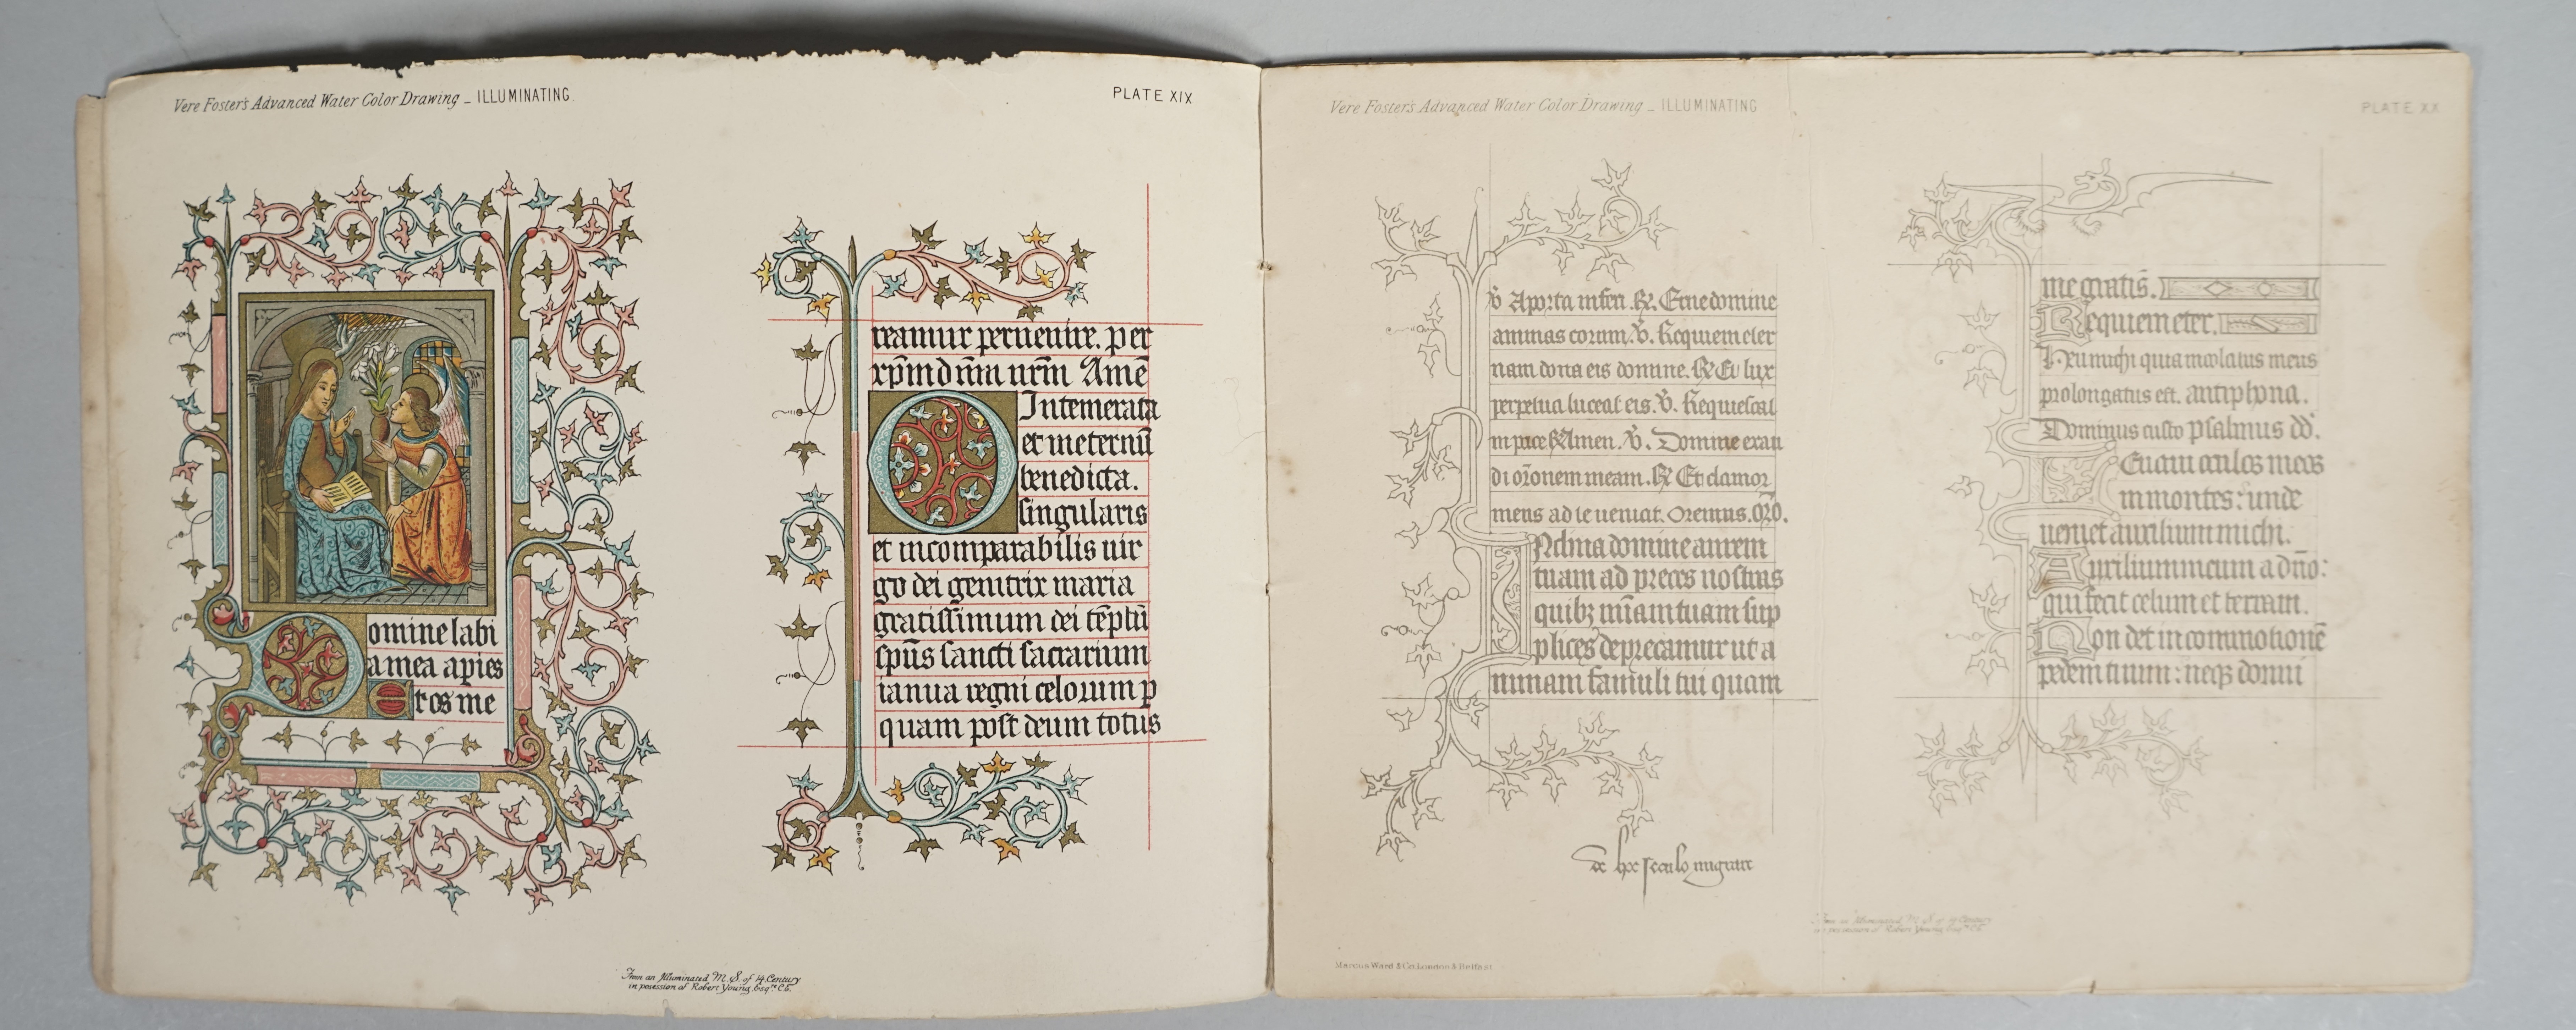 Vere Foster's Advanced Water Color Drawing _ ILLUMINATING.
PLATE XIX
omine labi
a mea apies
E t os me
reamur peruenire. per
xp̄m dn̄m nr̄m Amē
O Intemerata
et in eternū
benedicta.
singularis
et incomparabilis uir
go dei genitrix maria
gratissimum dei tēplū
spūs sancti sacrarium
ianua regni celorum p
quam post deum totus
From an Illuminated M.S. of 14 Century
in posession of Robert Young, Esqre C.E.
Vere Foster's Advanced Water Color Drawing _ ILLUMINATING
PLATE XX
℣ A porta inferi. ℟. Erue domine
animas eorum. ℣. Requiem eter
nam dona eis domine. ℟ Et lux
perpetua luceat eis. ℣. Requiescat
in pace ℟ Amen. ℣. Domine exau
di or̄onem meam. ℟ Et clamor
meus ad te ueniat. Oremus. or̄o.
INclina domine aurem
tuam ad preces nostras
quibz mīam tuam sup
plices deprecamur ut a
nimam famuli tui quam
de hoc seculo migrare
me gratis.
Requiem eter.
Heu michi quia incolatus meus
prolongatus est. antiphona.
Dominus custo psalmus dd.
LEuaui oculos meos
in montes: unde
ueniet auxilium michi.
Auxilium meum a dn̄o:
qui fecit celum et terram.
Non det in commotionē
pedem tuum: neqz dormi
From an Illuminated M.S. of 14 Century
in possession of Robert Young, Esqre C.E.
Marcus Ward & Co. London & Belfast